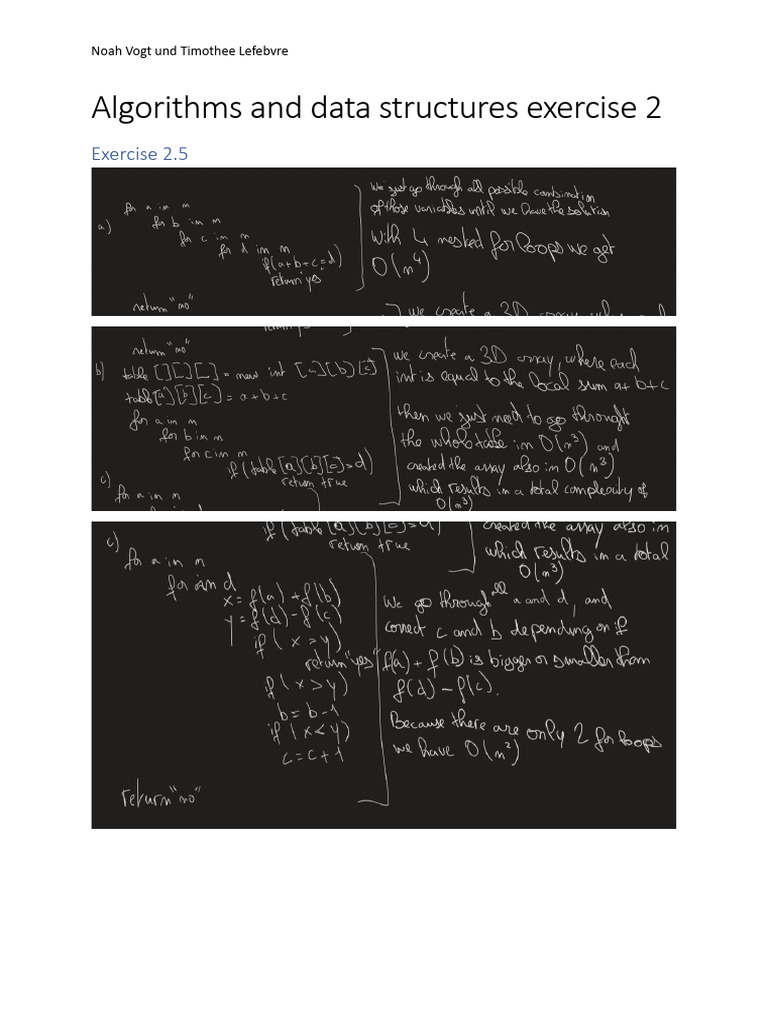 Noah Vogt und Timothee Lefebvre
Algorithms and data structures exercise 2
Exercise 2.5
a)
for a in n
for b in n
for c in n
for d in n
if(a+b+c=d)
return yes
return "no"
we just go through all possible combination
of those variables until we have the solution
With 4 nested for loops we get
O(n⁴)
we create a 3D array, where each
return "no"
b) table [][][] = new int [a][b][c]
table[a][b][c] = a+b+c
for a in n
for b in n
for c in n
if (table[a][b][c]=d)
return true
c) for a in n
we create a 3D array, where each
int is equal to the local sum a+b+c
then we just need to go throught
the whole table in O(n³) and
created the array also in O(n³)
which results in a total complexity of
O(n³)
if (table[a][b][c]=d)
return true
created the array also in
which results in a total
O(n³)
c)
for a in n
for d
x = f(a) + f(b)
y = f(d) - f(c)
if ( x = y)
return "yes"
if ( x > y)
b = b - 1
if ( x < y)
c = c + 1
return "no"
we go through all a and d, and
correct c and b depending on if
f(a) + f(b) is bigger or smaller than
f(d) - f(c).
Because there are only 2 for loops
we have O(n²)